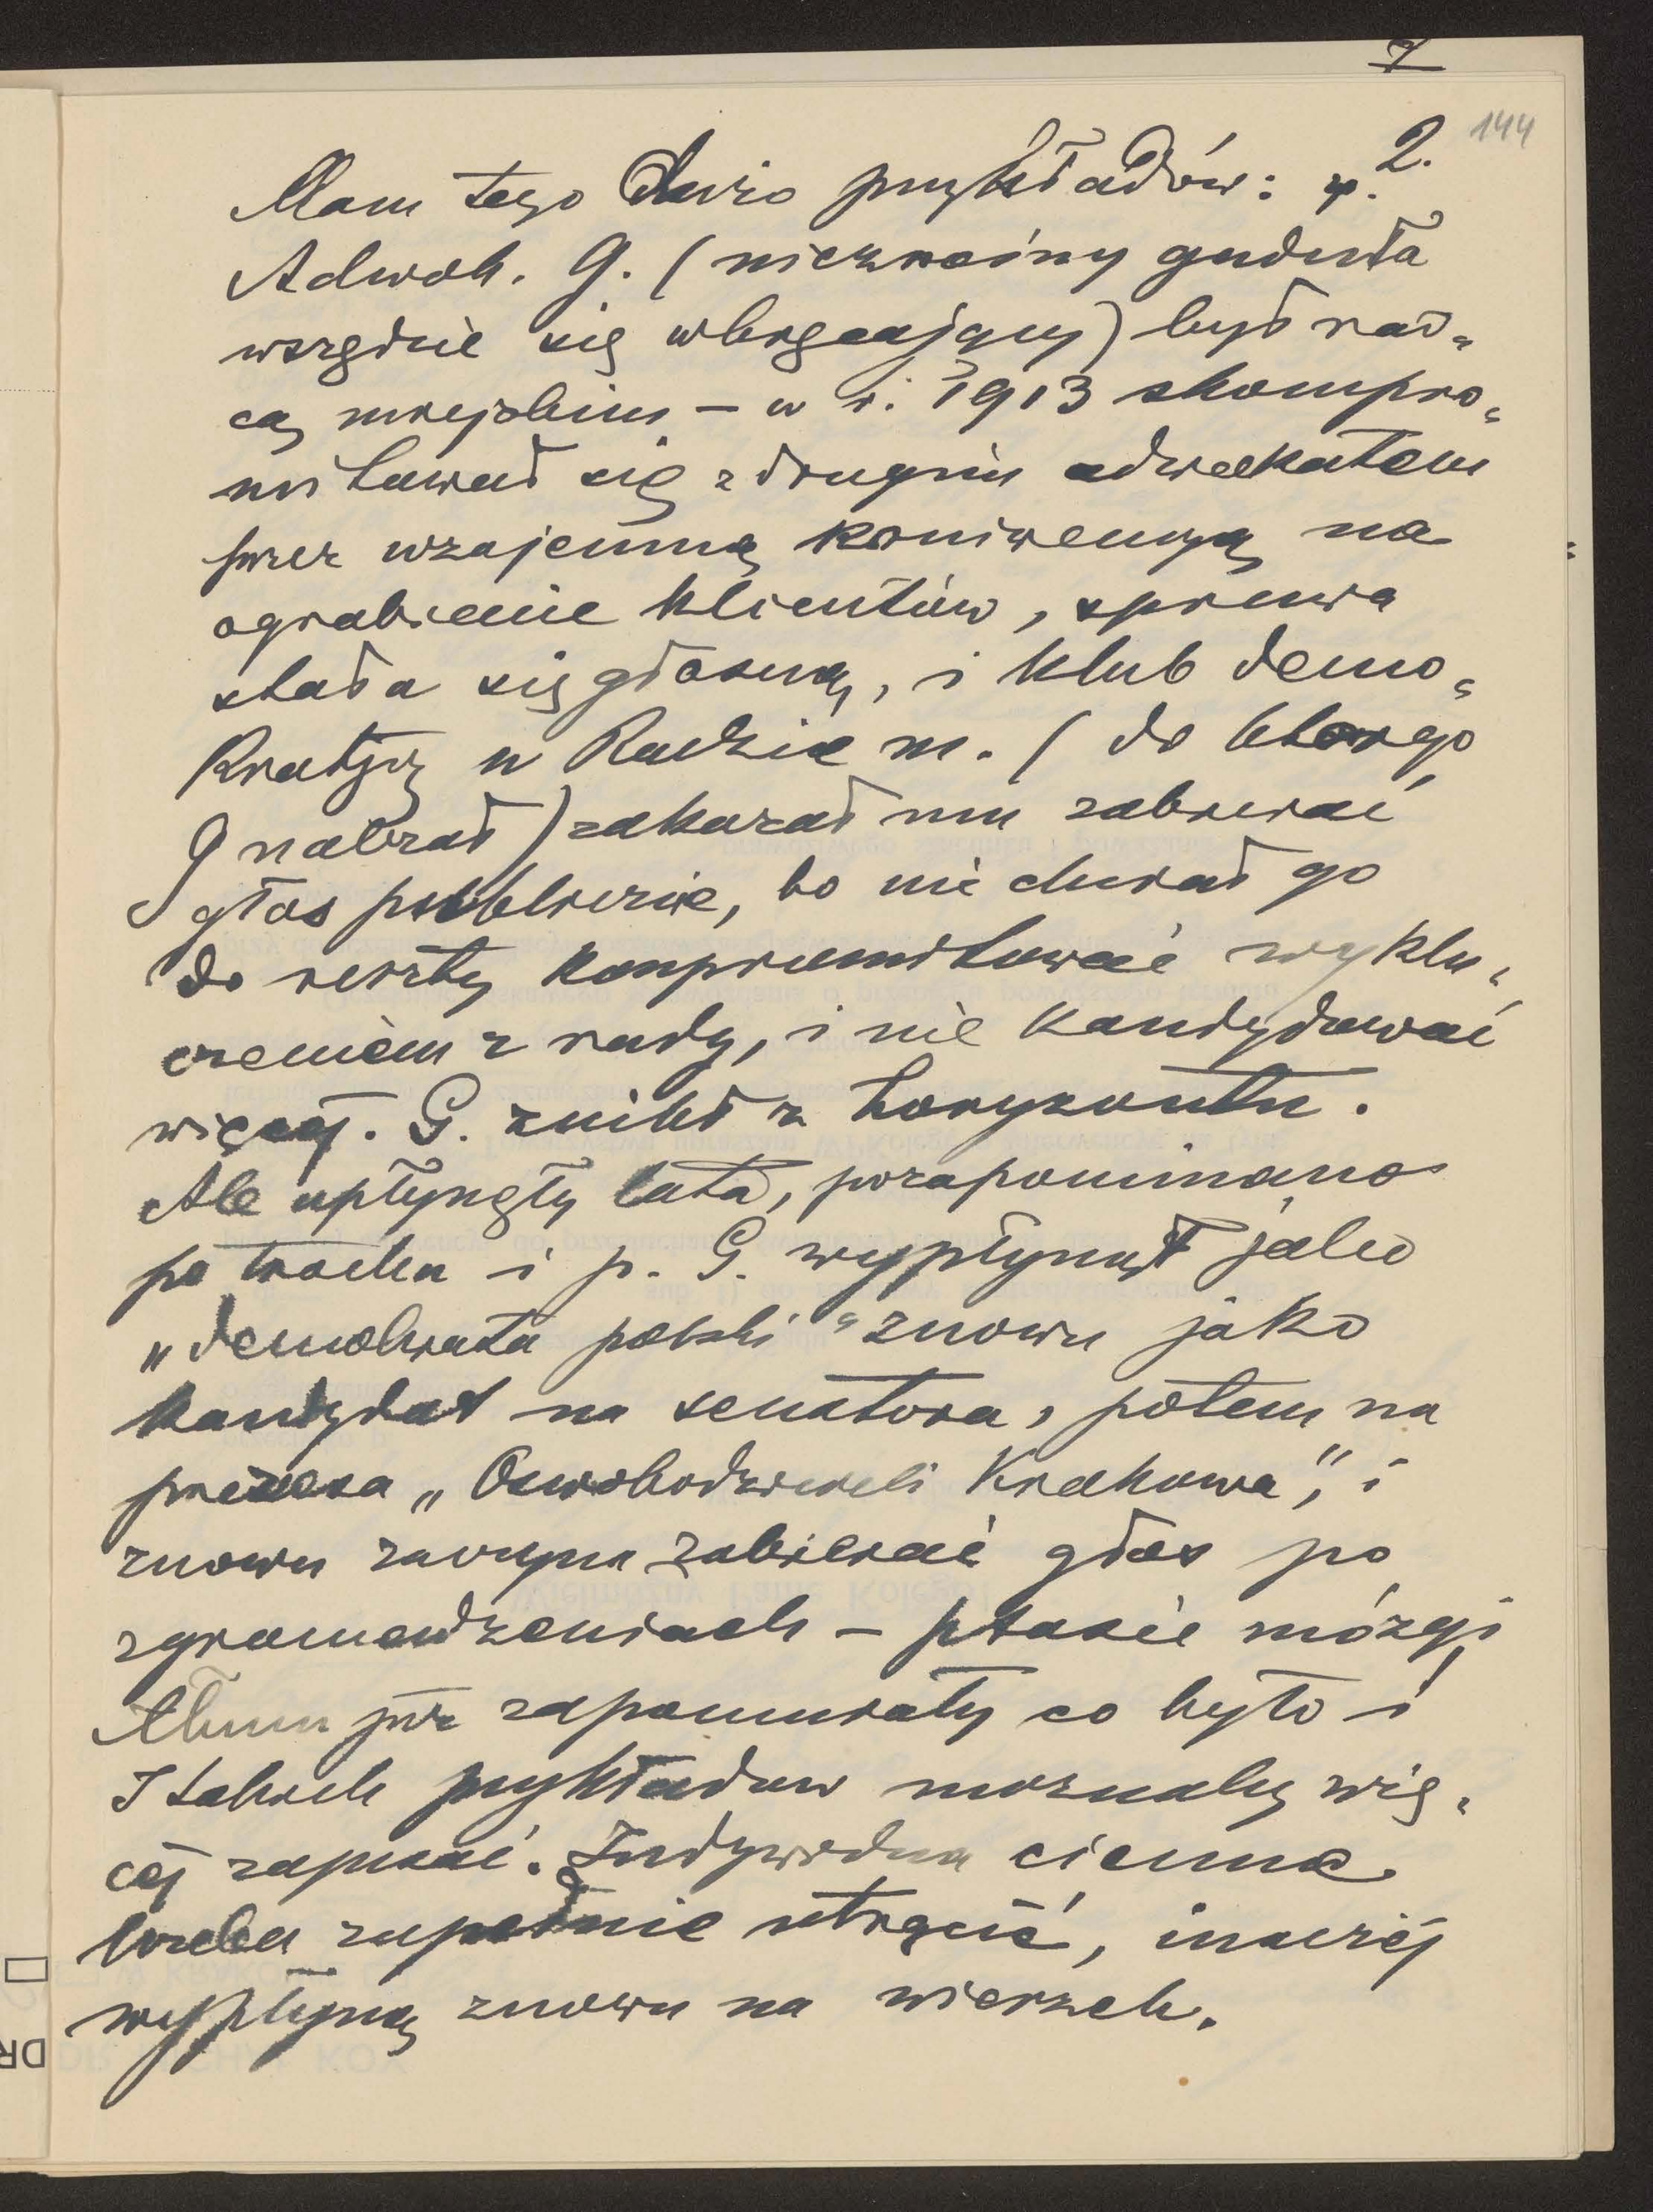 7
144
2.
Mam tego dużo przykładów: p.
Adwok. G. (nieznośny gaduła
wszędzie się wkręcający) był rad=
cą miejskim – w r. 1913 skompro=
mitował się z drugim adwokatem
przez wzajemną koniwencyą na
ograbienie klientów, sprawa
stała się głośną, i klub demo=
kratyczny w Radzie m. (do którego
G należał) zakazał mu zabierać
głos publicznie, bo nie chciał go
do reszty kompromitować wyklu=
czeniem z rady, i nie kandydować
więcej. G. znikł z horyzontu.
Ale upłynęły lata, pozapominano
po trochu i p. G. wypłynął jako
„demokrata polski" znowu jako
kandydat na senatora, potem na
prezesa „Oswobodzicieli Krakowa", i
znowu zaczyna zabierać głos po
zgromadzeniach – ptasie mózgi
tłumu już zapomniały co było i
I takich przykładów możnaby wię=
cej zapisać. Indywidua ciemne
trzeba zupełnie utrącić, inaczej
wypłyną znowu na wierzch.